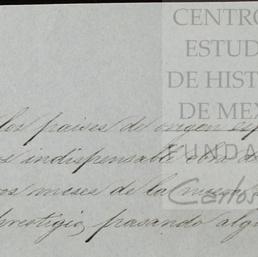 CENTRO
ESTUD
DE HIST
DE MEX
FUNDA
Carlos
los paises de origen
se indispensable con
os meses de la nueva
prestigio, pasando alg